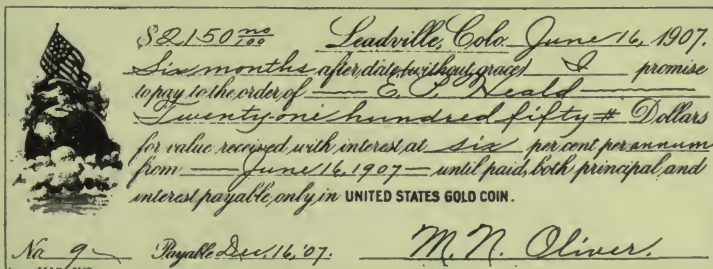 $2150 no/100 Leadville, Colo. June 16, 1907.
Six months after date (without grace) I promise
to pay to the order of E. P. Heald
Twenty-one hundred fifty # Dollars
for value received with interest at six per cent per annum
from June 16, 1907 until paid, both principal and
interest payable only in UNITED STATES GOLD COIN.
No. 9 Payable Dec. 16, '07. M. N. Oliver.